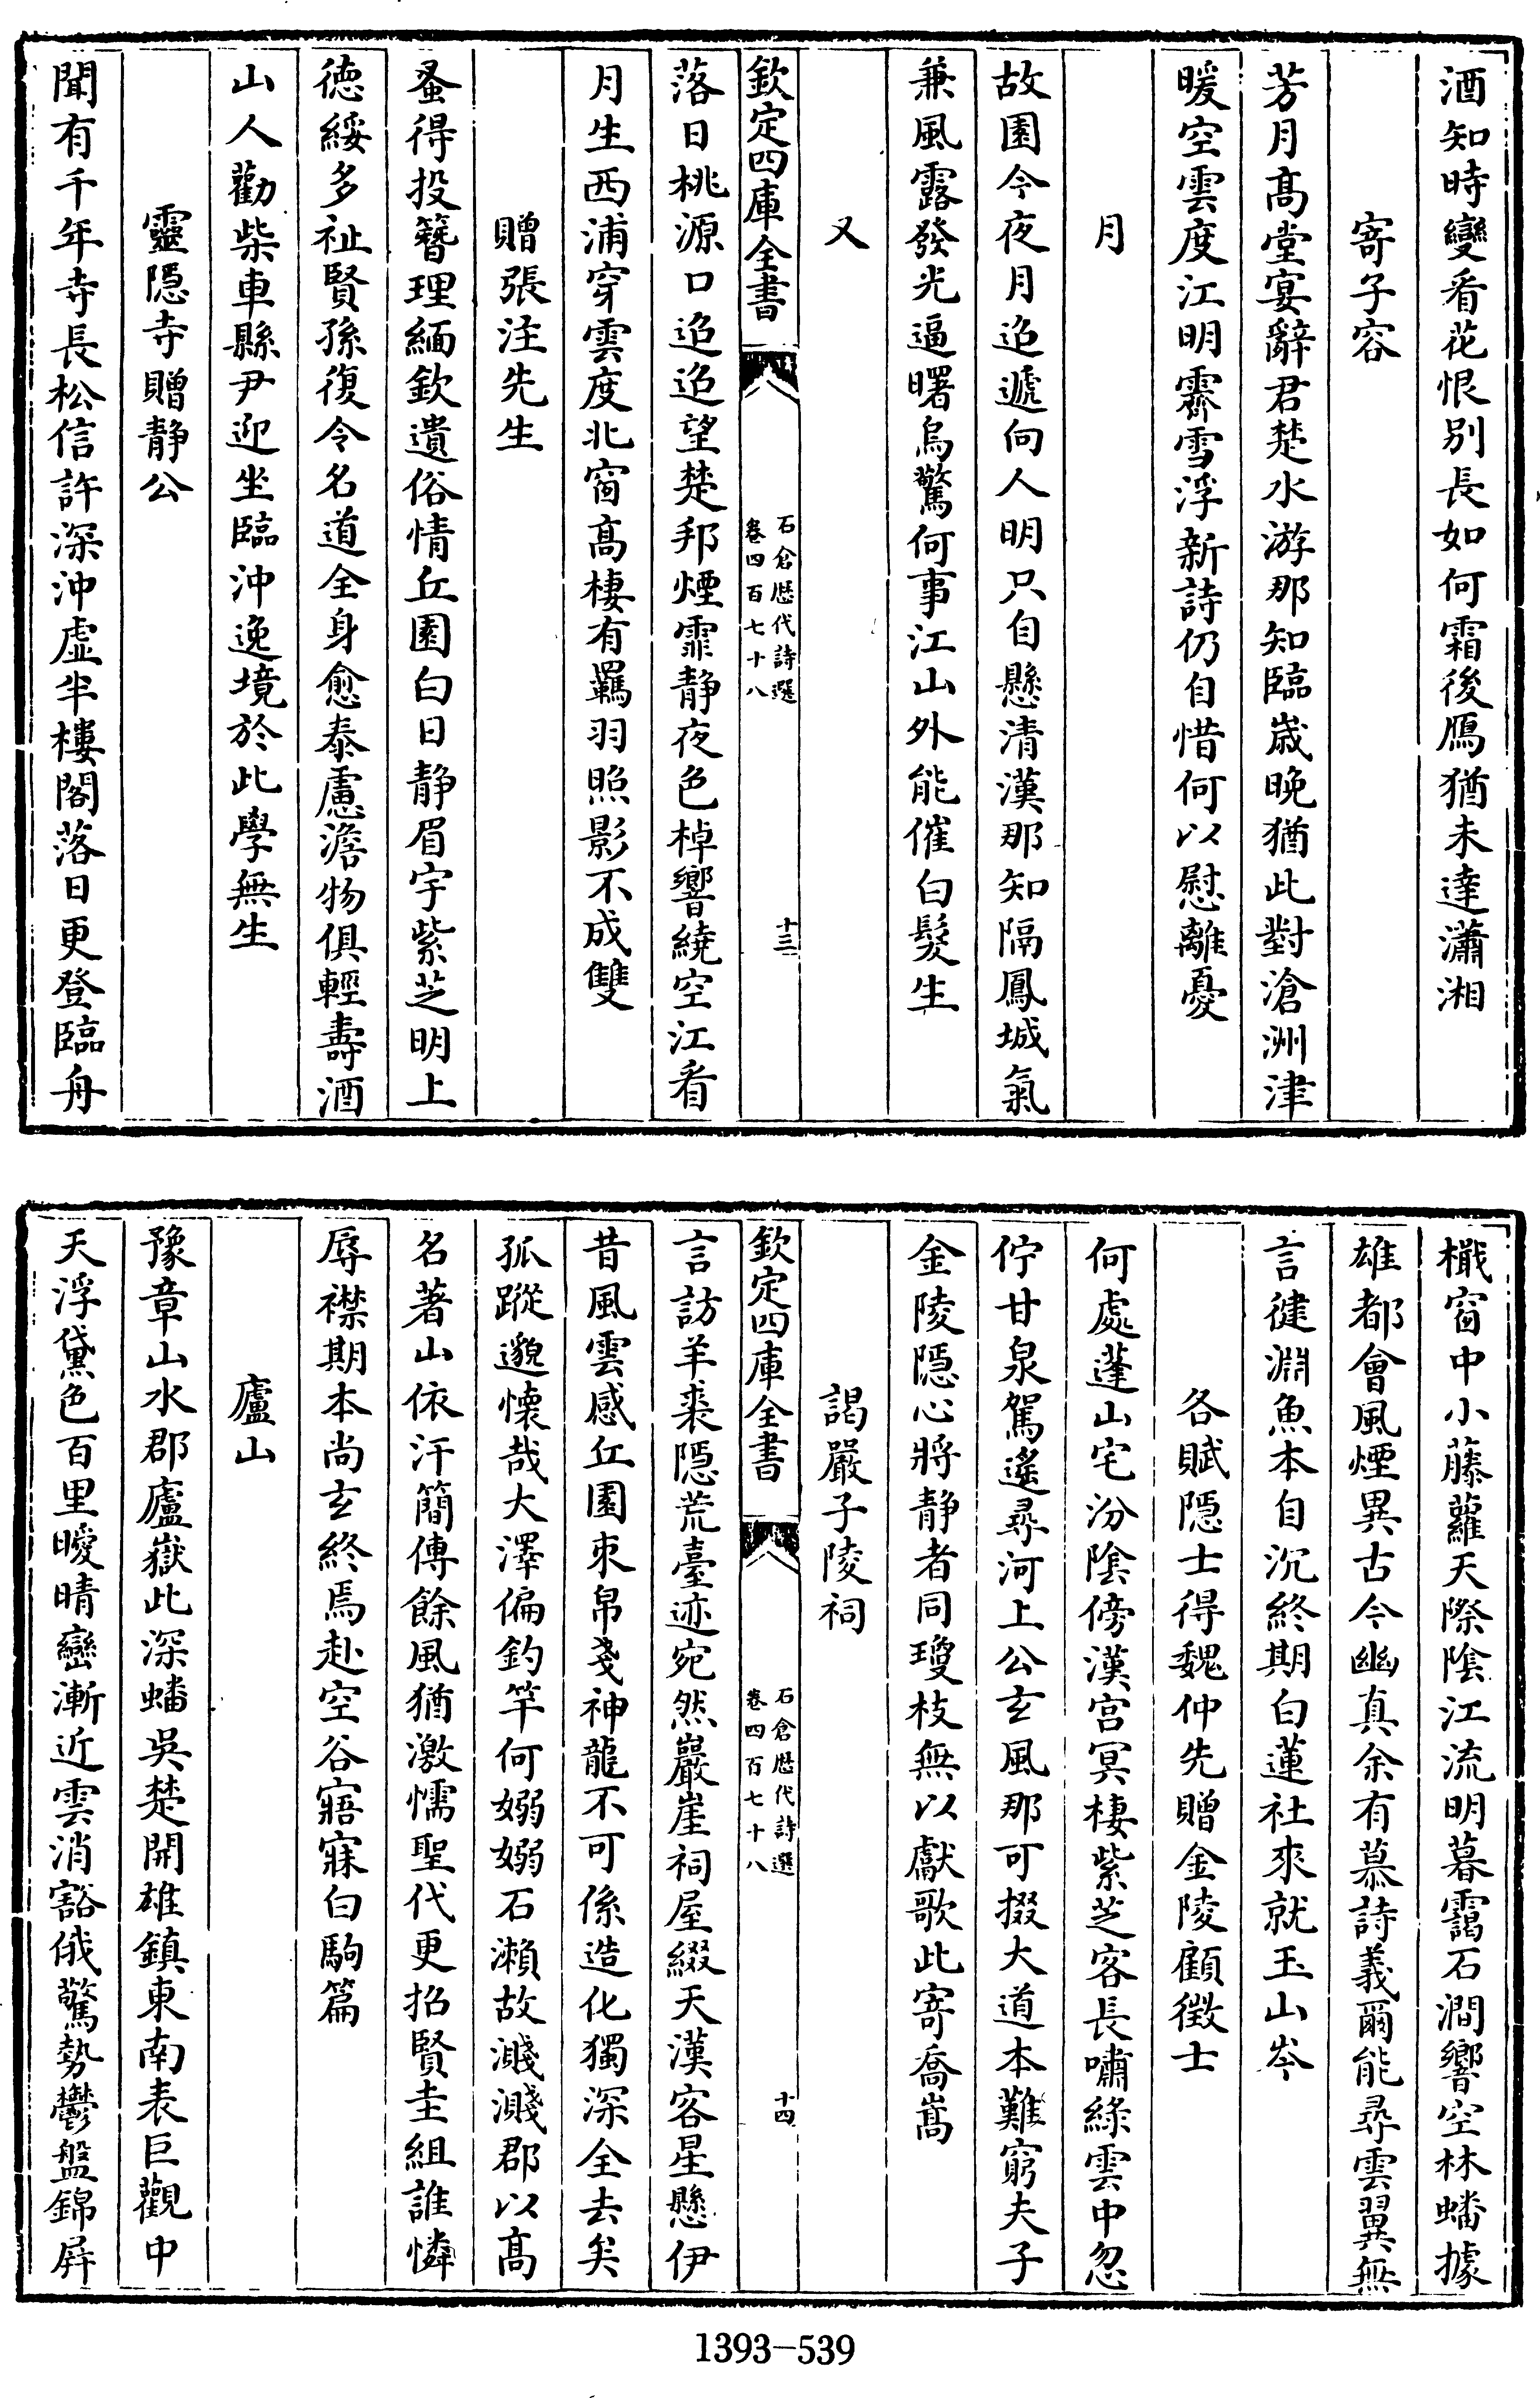 酒知時變看花恨别長如何霜後鴈猶未達瀟湘
寄子容
芳月髙堂宴辭君楚水游那知臨歳晩猶此對滄洲津
暖空雲度江明霽雪浮新詩仍自惜何以慰離憂
月
故園今夜月迢遞向人明只自懸清漢那知隔鳳城氣
兼風露發光逼曙烏驚何事江山外能催白髮生
又
欽定四庫全書
石倉歴代詩選
卷四百七十八
十三
落日桃源口迢迢望楚邦煙霏静夜色棹響繞空江看
月生西浦穿雲度北窗髙棲有羈羽照影不成雙
贈張注先生
蚤得投簪理緬欽遺俗情丘園白日静眉宇紫芝明上
徳綏多祉賢孫復令名道全身愈泰慮澹物俱輕壽酒
山人勸柴車縣尹迎坐臨沖逸境於此學無生
靈隠寺贈静公
聞有千年寺長松信許深沖虚半樓閣落日更登臨舟
檝窗中小藤蘿天際陰江流明暮靄石澗響空林蟠據
雄都會風煙異古今幽真余有慕詩義爾能尋雲翼無
言徤淵魚本自沉終期白蓮社來就玉山岑
各賦隠士得魏仲先贈金陵顧徴士
何處蓬山宅汾陰傍漢宫冥棲紫芝客長嘯緑雲中忽
佇甘泉駕遙尋河上公玄風那可掇大道本難窮夫子
金陵隠心將静者同瓊枝無以獻歌此寄喬嵩
謁嚴子陵祠
欽定四庫全書
石倉歴代詩選
卷四百七十八
十四
言訪羊裘隠荒臺迹宛然巖崖祠屋綴天漢客星懸伊
昔風雲感丘園束帛戔神龍不可係造化獨深全去矣
孤蹤邈懐哉大澤偏釣竿何嫋嫋石瀨故濺濺郡以髙
名著山依汗簡傳餘風猶激懦聖代更招賢圭組誰憐
辱襟期本尚玄終焉赴空谷寤寐白駒篇
廬山
豫章山水郡廬嶽此深蟠吳楚開雄鎮東南表巨觀中
天浮黛色百里曖晴巒漸近雲消豁俄驚勢鬱盤錦屏
1393-539